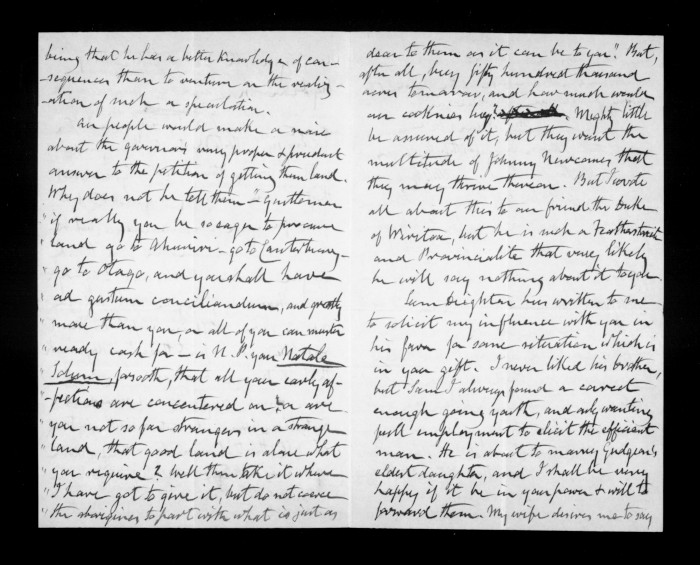 being that he has a better knowledge of con-
-sequences than to venture on the realiz-
-ation of such a speculation.
Our people would make a noise
about the governor's very proper & prudent
answer to the petition of getting them land.
Why does not he tell them - "Gentlemen
"if really you be so eager to procure
"land go to Ahuriri - go to Canterbury -
"go to Otago, and you shall have
"ad gustum conciliandum, and greatly
"more than you or all of you can muster
"ready cash for - is N.P. your Natale
"Solum, forsooth, that all your early af-
"-fections are concentered on? or are
"you not so far strangers in a strange
"land, that good land is alone what
"you require? Well then take it where
"I have got to give it, but do not coerce
"the aborigines to part with what is just as
dear to them as it can be to you." But,
after all, buy fifty hundred thousand
acres tomorrow, and how much would
our cockneys buy? Mighty little
be assured of it, but they want the
multitude of Johnny Newcomes that
they may thrive thereon. But I wrote
all about this to our friend the Duke
of Wiriton, but he is such a
and Provincialite that very likely
he will say nothing about it to you.
Sam Leighton has written to me
to solicit my influence with you in
his favor for some situation which is
in your gift. I never liked his brother,
but Sam I always found a correct
enough going youth, and only wanting
full employment to elicit the efficient
man. He is about to marry Gudgeon's
eldest daughter, and I shall be very
happy if it be in your power & will to
forward them. My wife desires me to say